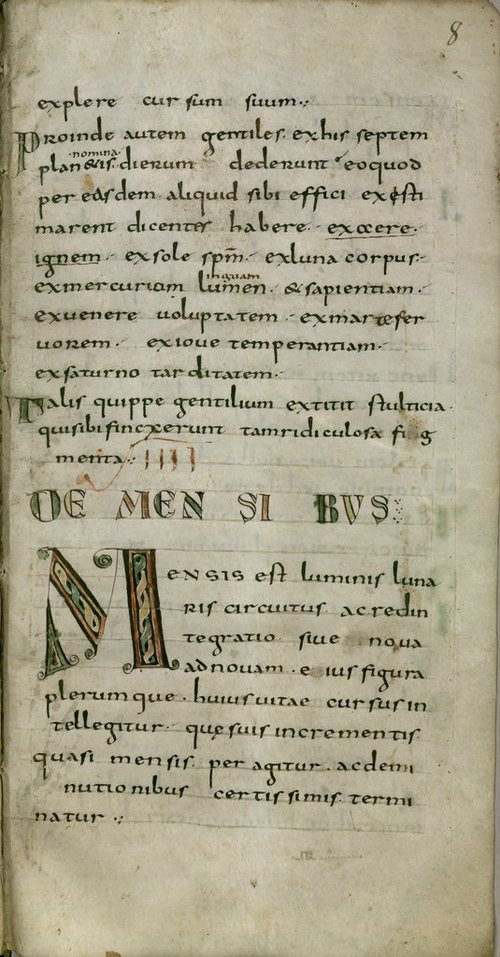 8
explere cursum suum
Proinde autem gentiles. ex his septem
nomina
plan&is. dierum dederunt eoquod
per easdem aliquid sibi effici existi
marent dicentes habere. excere.
ignem. exsole spm̄. exluna corpus.
inguam
exmercurium lumen. &sapientiam.
exvenere voluptatem. exmartefer
vorem. exiove temperantiam.
exsaturno tarditatem.
Talis quippe gentilium extitit stulticia.
quisibifinxerunt tamridiculosa fig
menta. IIII
DE MENSIBUS
MENSIS est luminis luna
ris circuitus. acredin
tegratio sive nova
adnovam. eius figura
plerumque. huiusvitae cursusin
tellegitur. quęsuis incrementis
quasi mensis. peragitur. acdemi
nutionibus certissimis. termi
natur.